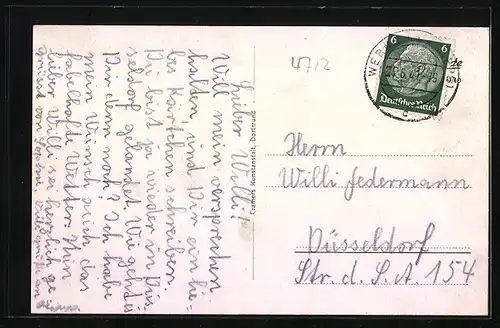 Lieber Willi!
Will mein versprechen
halten, und Dir ein lie-
bes Kärtchen schreiben.
Du bist ja wieder in Düs-
seldorf gelandet. Wie geht es
Dir denn noch? Ich habe
mein Wunsch auch das
fabelhafte Wetter. Nun
lieber Willi sei herzlich ge-
grüsst von
Cramers Kunstanstalt, Dortmund
4712
6 6
Deutsches Reich
WER
c
Herrn
Willi Jedermann
Düsseldorf
Str. d. S. A 154